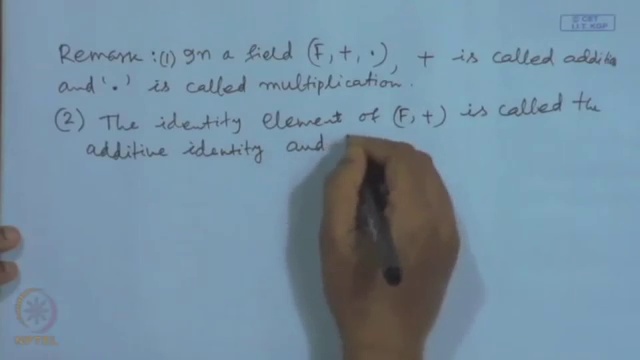 © CET
I.I.T. KGP
Remark : (1) In a field (F, +, ·), + is called addition
and '·' is called multiplication.
(2) The identity element of (F, +) is called the
additive identity and
NPTEL